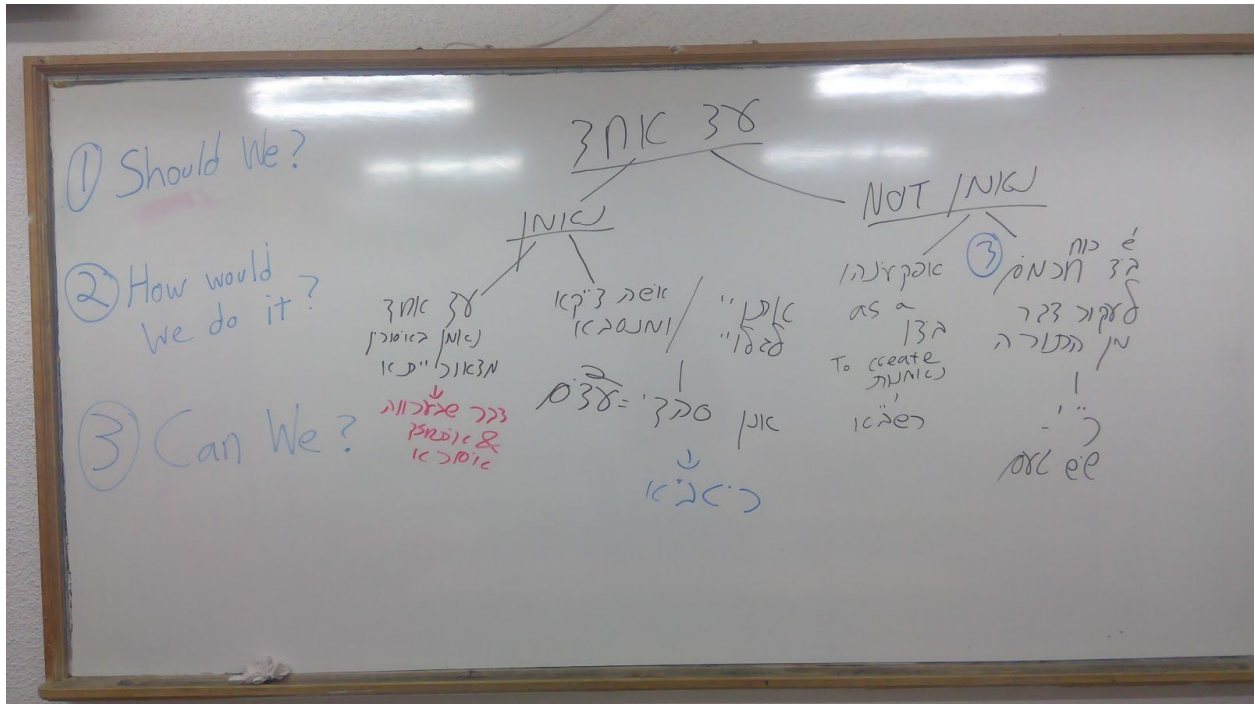 ① Should We?
② How would
We do it?
③ Can We?
עד אחד
נאמן
עד אחד
נאמן באיסורין
מדאורייתא
דבר שבערווה
& איתחזק
איסורא
אשה דייקא
ומנסבא
אתיי
לגלויי
אנן סהדי = עדים
ריטב"א
NOT נאמן
אפקענהו
as a
בדין
To create
נאמנות
רשב"א
③
יש כוח
ב"ד חכמים
לעקור דבר
מן התורה
ר"י -
שיש טעם